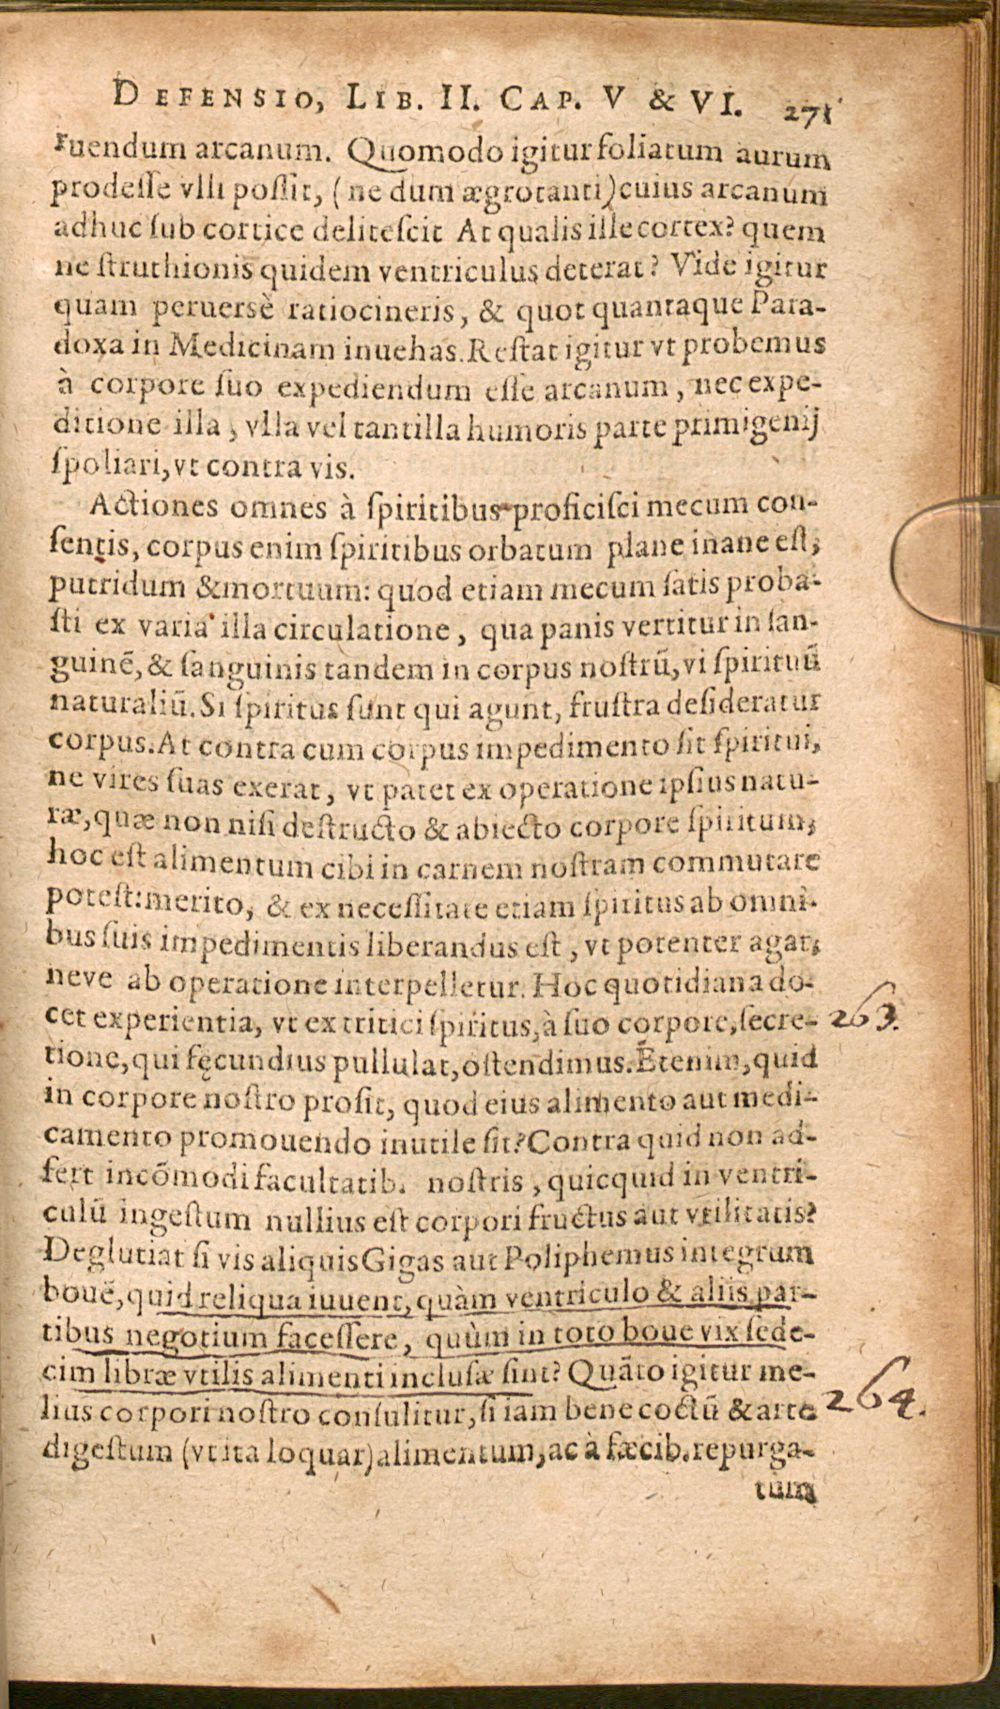 DEFENSIO, LIB. II. CAP. V & VI. 271
ruendum arcanum. Quomodo igitur foliatum aurum
prodesse vlli possit, (ne dum ægrotanti) cuius arcanum
adhuc sub cortice delitescit At qualis ille cortex? quem
ne struthionis quidem ventriculus deterat? Vide igitur
quam peruersè ratiocineris, & quot quantaque Para-
doxa in Medicinam inuehas. Restat igitur vt probemus
à corpore suo expediendum esse arcanum, nec expe-
ditione illa, vlla vel tantilla humoris parte primigenij
spoliari, vt contra vis.
Actiones omnes à spiritibus proficisci mecum con-
sentis, corpus enim spiritibus orbatum plane inane est,
putridum & mortuum: quod etiam mecum satis proba-
sti ex varia illa circulatione, qua panis vertitur in san-
guinē, & sanguinis tandem in corpus nostrū, vi spirituū
naturaliū. Si spiritus sunt qui agunt, frustra desideratur
corpus. At contra cum corpus impedimento sit spiritui,
ne vires suas exerat, vt patet ex operatione ipsius natu-
ræ, quæ non nisi destructo & abiecto corpore spiritum,
hoc est alimentum cibi in carnem nostram commutare
potest: merito, & ex necessitate etiam spiritus ab omni-
bus suis impedimentis liberandus est, vt potenter agat,
neve ab operatione interpelletur. Hoc quotidiana do-
cet experientia, vt ex tritici spiritus, à suo corpore, secre- 263.
tione, qui fęcundius pullulat, ostendimus. Etenim, quid
in corpore nostro prosit, quod eius alimento aut medi-
camento promouendo inutile sit? Contra quid non ad-
fert incōmodi facultatib. nostris, quicquid in ventri-
culū ingestum nullius est corpori fructus aut vtilitatis?
Deglutiat si vis aliquis Gigas aut Poliphemus integrum
bouē, quid reliqua iuuent, quàm ventriculo & aliis par-
tibus negotium facessere, quùm in toto boue vix sede-
cim libræ vtilis alimenti inclusæ sint? Quāto igitur me-
lius corpori nostro consulitur, si iam bene coctū & arte 264.
digestum (vt ita loquar) alimentum, ac à fæcib. repurga-
tum